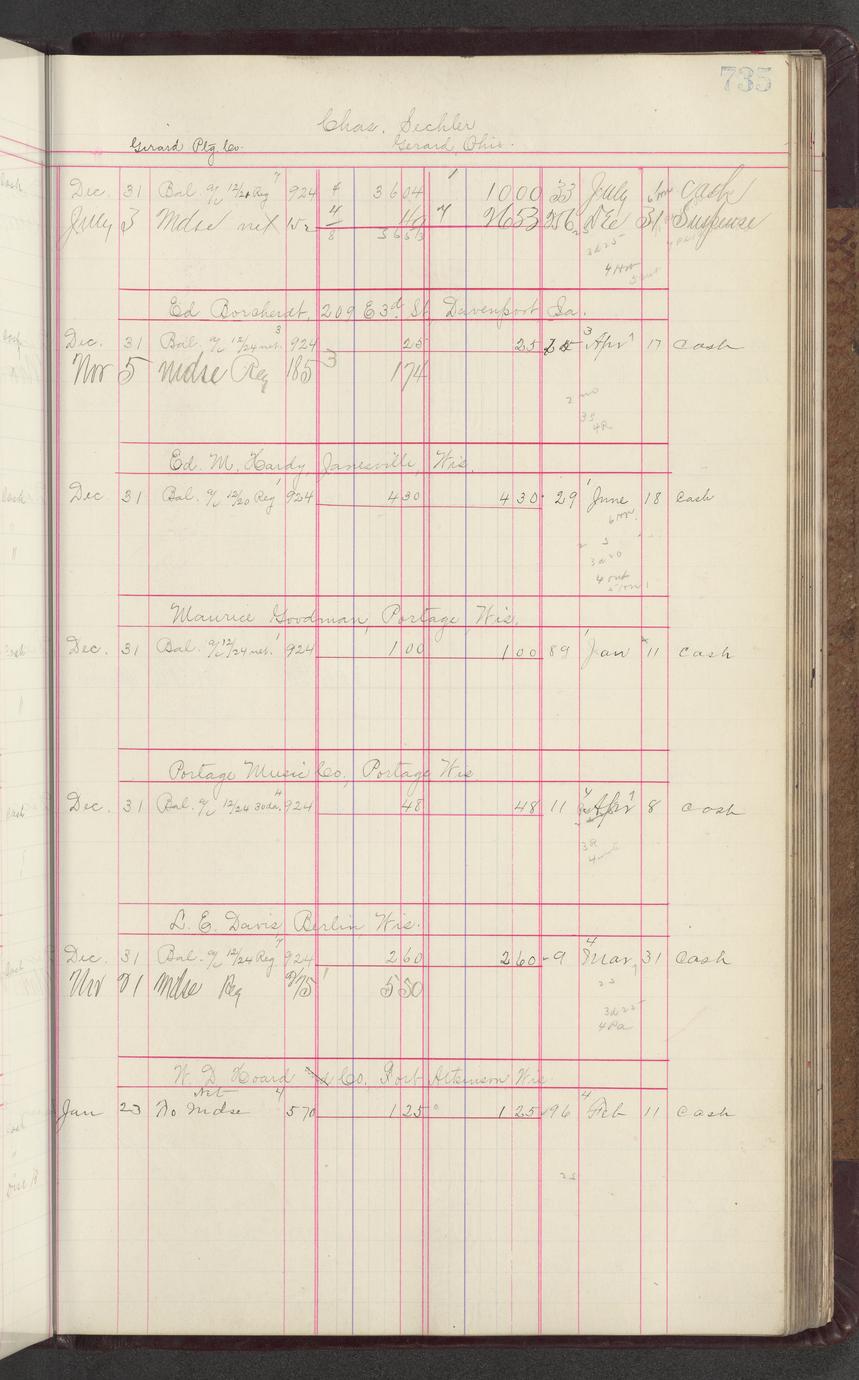 735
Chas. Sechler
Girard Ptg. Co. Gerard, Ohio.
Dec. 31 Bal. a/c 12/21 Reg 7 924 4 3604 1 1000 33 July 6 Cash
July 3 Mdse net 152 4 49 7 2653 256 Dec 31 Suspense
8 3653
4 Hon
Ed Borcherdt, 209 E 3d St, Davenport Ia.
Dec. 31 Bal. a/c 12/24 net. 3 924 25 25 3 Apr 17 Cash
Nov 5 Mdse Reg 185 3 174
Ed. M. Hardy, Janesville, Wis.
Dec. 31 Bal. a/c 12/20 Reg 1 924 430 430 29 1 June 18 Cash
Maurice Goodman, Portage, Wis.
Dec. 31 Bal. a/c 12/24 net. 1 924 100 100 89 1 Jan 11 Cash
Portage Music Co., Portage Wis.
Dec. 31 Bal. a/c 12/24 30da. 4 924 48 48 11 4 Apr 8 Cash
L. E. Davis, Berlin, Wis.
Dec. 31 Bal. a/c 12/24 Reg 7 924 260 260 9 4 Mar, 31 Cash
Nov 21 Mdse Reg 275 1 550
3d 25
4 Pa
W. D. Hoard & Co. Fort Atkinson Wis
Net 4
Jan 23 To Mdse 570 125 125 96 4 Feb 11 Cash
25